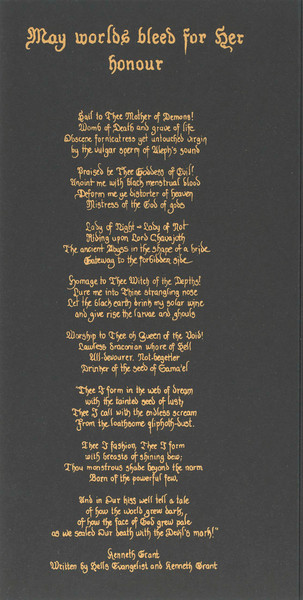 May worlds bleed for Her
honour
Hail to Thee Mother of Demons!
Womb of Death and grave of life
Obscene fornicatress yet untouched virgin
by the vulgar sperm of Aleph's sound
Praised be Thee Goddess of Evil!
Anoint me with black menstrual blood
Deform me ye distorter of heaven
Mistress of the God of gods
Lady of Night - Lady of Not
Riding upon Lord Chavajoth
The ancient Abyss in the shape of a bride
Gateway to the forbidden side
Homage to Thee Witch of the Depths!
Lure me into Thine strangling nose
Let the black earth drink my solar wine
and give rise the larvae and ghouls
Worship to Thee oh Queen of the Void!
Lawless Draconian whore of Hell
All-devourer, Not-begetter
Drinker of the seed of Sama'el
"Thee I form in the web of dream
with the tainted seed of lust;
Thee I call with the endless scream
From the loathsome qliphoth-dust.
Thee I fashion, Thee I form
with breasts of shining dew;
Thou monstrous shade beyond the norm
Born of the powerful few.
And in Our kiss well tell a tale
of how the world grew dark,
of how the face of God grew pale
as we sealed Our death with the Devil's mark!"
Kenneth Grant
Written by Hells Evangelist and Kenneth Grant